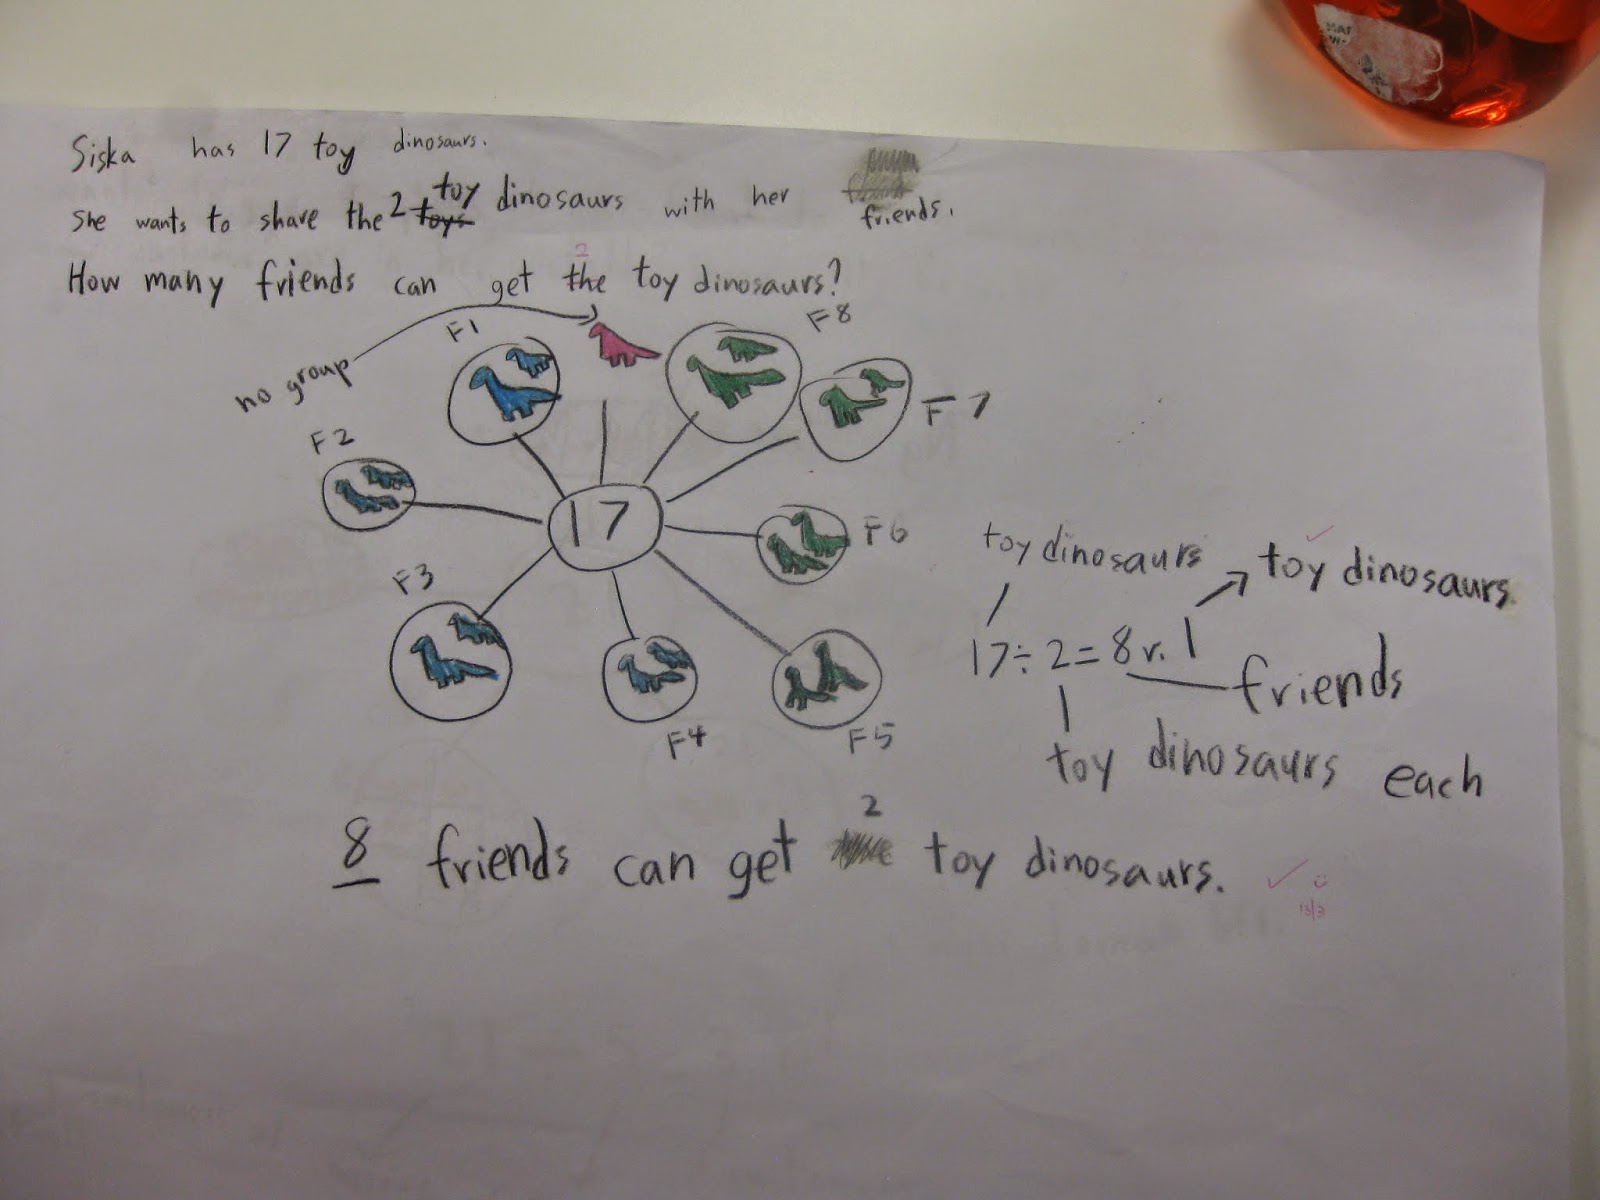 Siska has 17 toy dinosaurs.
She wants to share the 2 toys toy dinosaurs with her friends.
2
How many friends can get the toy dinosaurs?
no group
F1
F8
F7
F2
17
F6
F3
F4
F5
toy dinosaurs
toy dinosaurs
17÷2=8 r. 1
friends
toy dinosaurs each
2
8 friends can get toy dinosaurs.
13/3